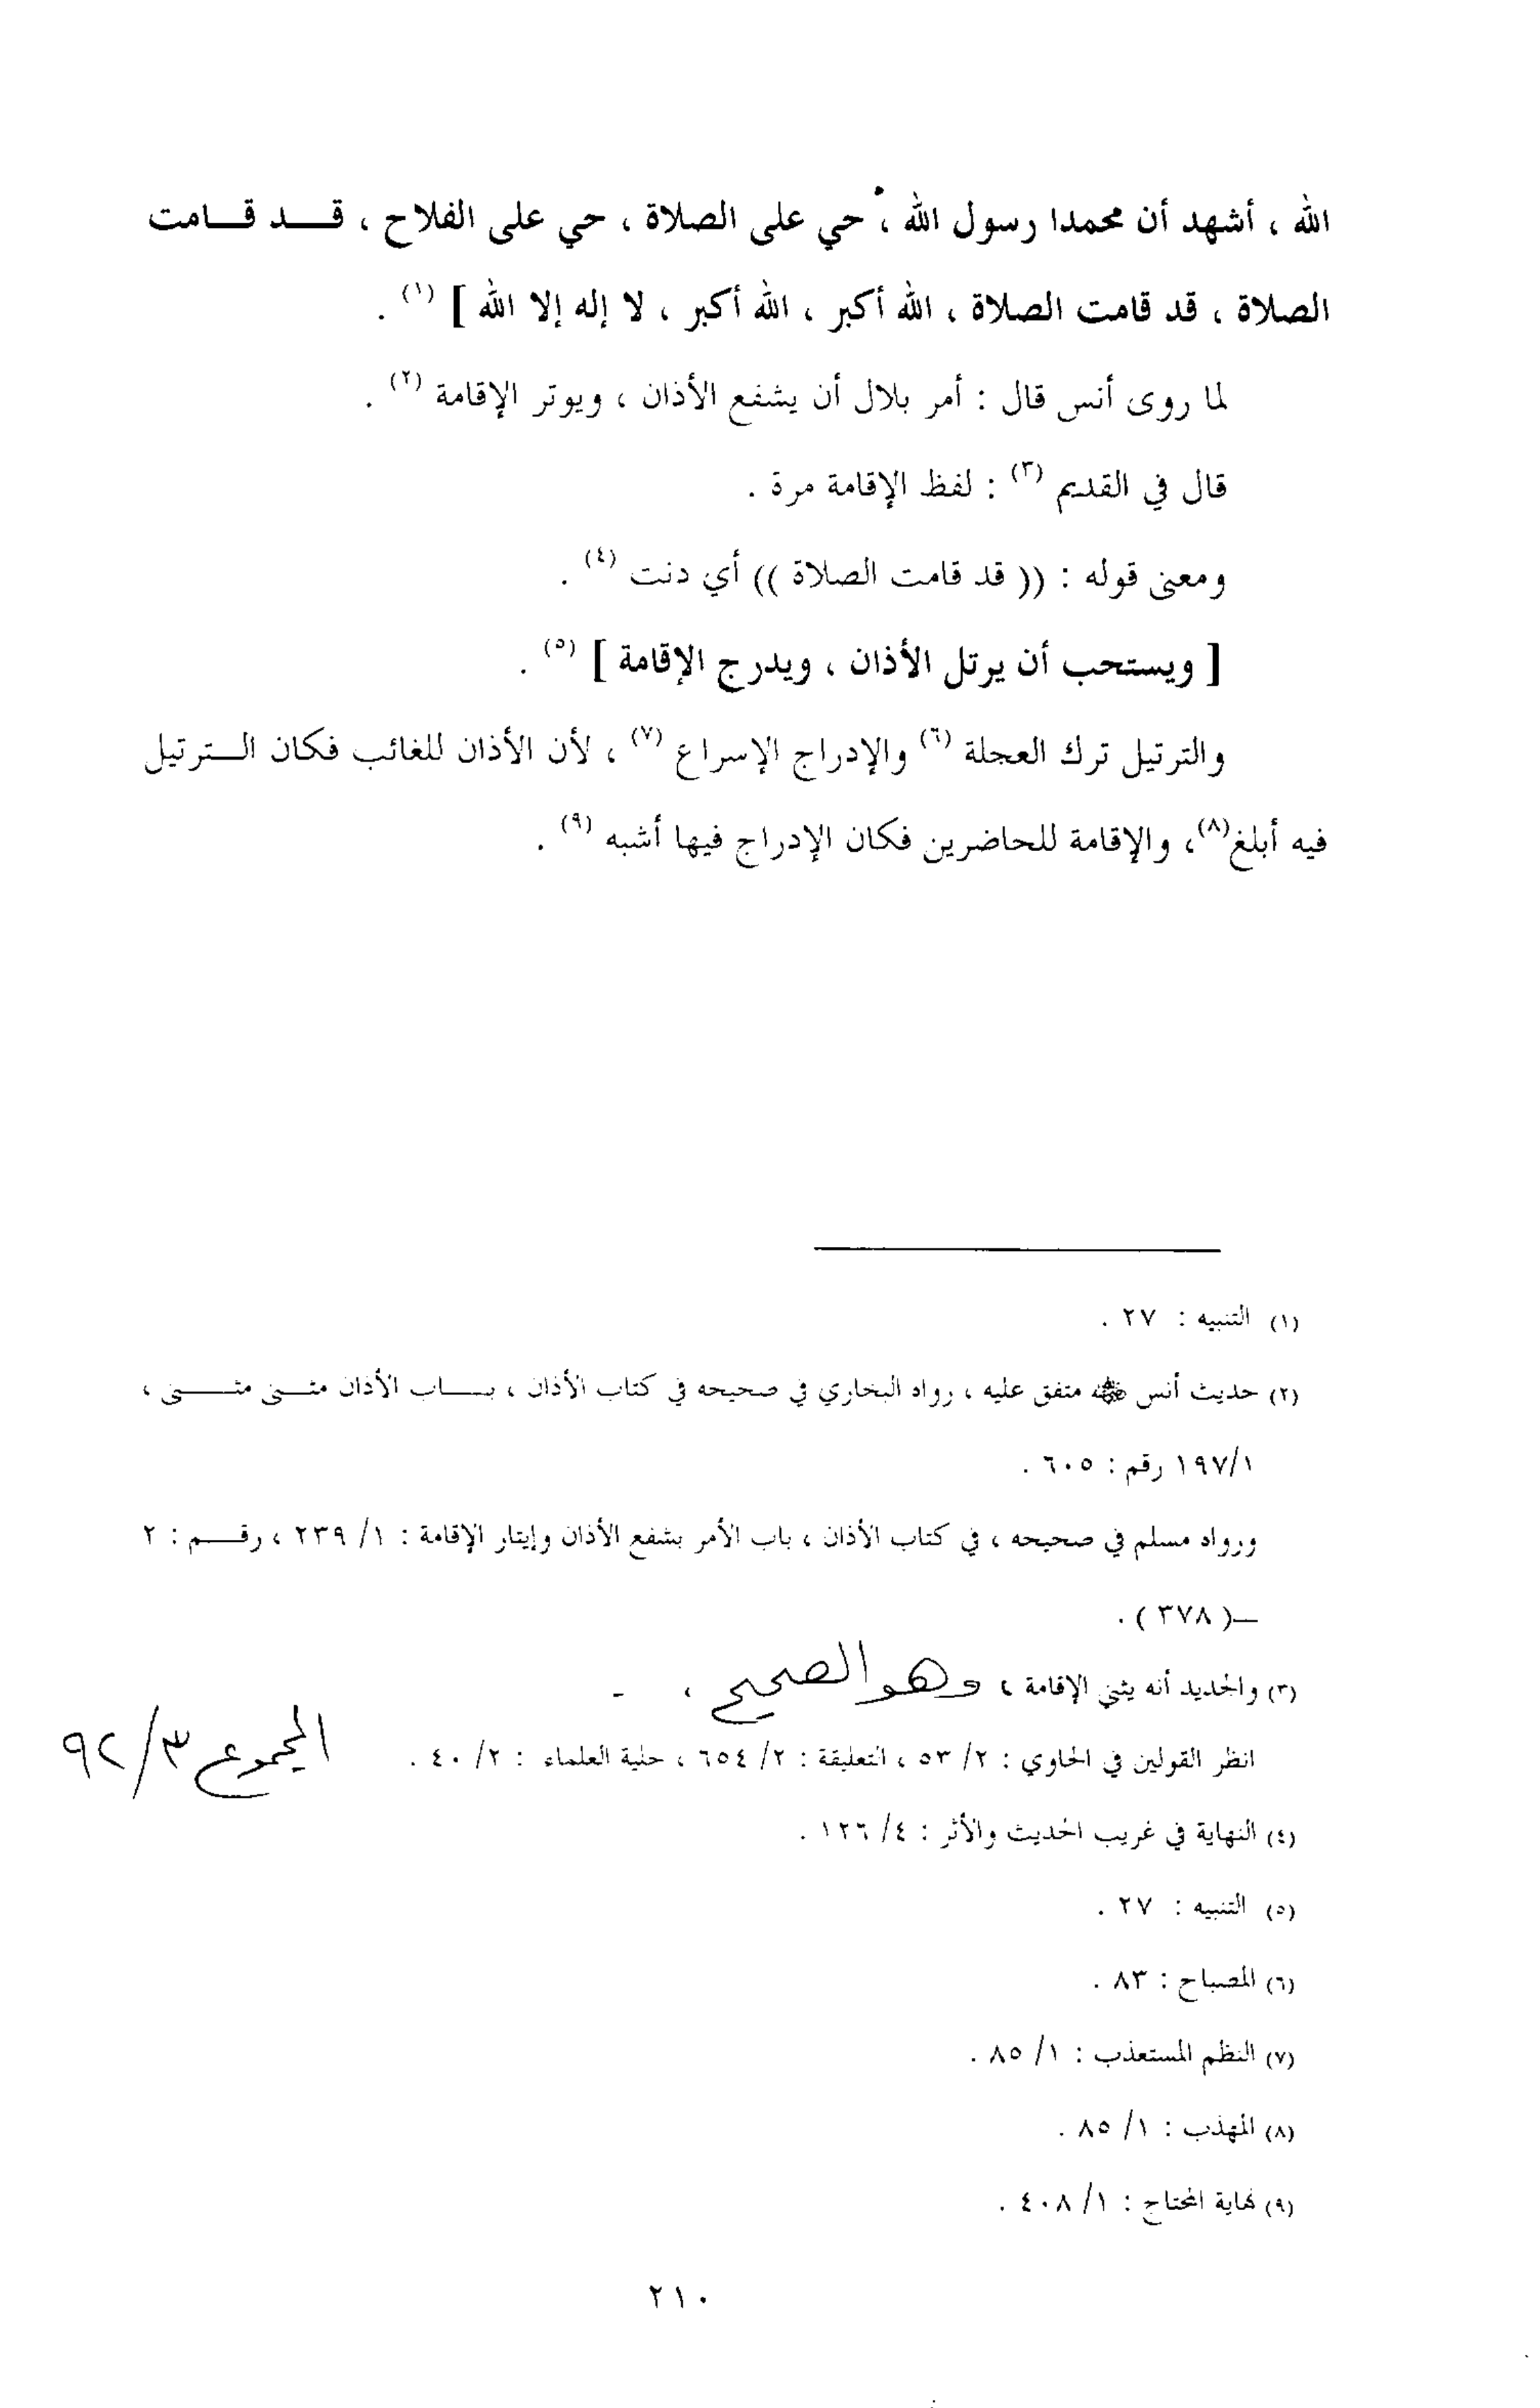 الله ، أشهد أن محمدا رسول الله ، حي على الصلاة ، حي على الفلاح ، قـــد قـــامت
الصلاة ، قد قامت الصلاة ، الله أكبر ، الله أكبر ، لا إله إلا الله ] (١) .
لما روى أنس قال : أمر بلال أن يشفع الأذان ، ويوتر الإقامة (٢) .
قال في القديم (٣) : لفظ الإقامة مرة .
ومعنى قوله : (( قد قامت الصلاة )) أي دنت (٤) .
[ ويستحب أن يرتل الأذان ، ويدرج الإقامة ] (٥) .
والترتيل ترك العجلة (٦) والإدراج الإسراع (٧) ، لأن الأذان للغائب فكان الـــترتيل
فيه أبلغ(٨)، والإقامة للحاضرين فكان الإدراج فيها أشبه (٩) .
(١) التنبيه : ٢٧ .
(٢) حديث أنس ﵁ متفق عليه ، رواه البخاري في صحيحه في كتاب الأذان ، بـــاب الأذان مثـــنى مثـــنى ،
١٩٧/١ رقم : ٦٠٥ .
ورواه مسلم في صحيحه ، في كتاب الأذان ، باب الأمر بشفع الأذان وإيتار الإقامة : ١/ ٢٣٩ ، رقـــم : ٢
–( ٣٧٨ ) .
(٣) والجديد أنه يثني الإقامة ، وهو الصحيح ، -
انظر القولين في الحاوي : ٢/ ٥٣ ، التعليقة : ٢/ ٦٥٤ ، حلية العلماء : ٢/ ٤٠ . المجموع ٣/ ٩٢
(٤) النهاية في غريب الحديث والأثر : ٤/ ١٢٦ .
(٥) التنبيه : ٢٧ .
(٦) المصباح : ٨٣ .
(٧) النظم المستعذب : ١/ ٨٥ .
(٨) المهذب : ١/ ٨٥ .
(٩) نهاية المحتاج : ١/ ٤٠٨ .
٢١٠